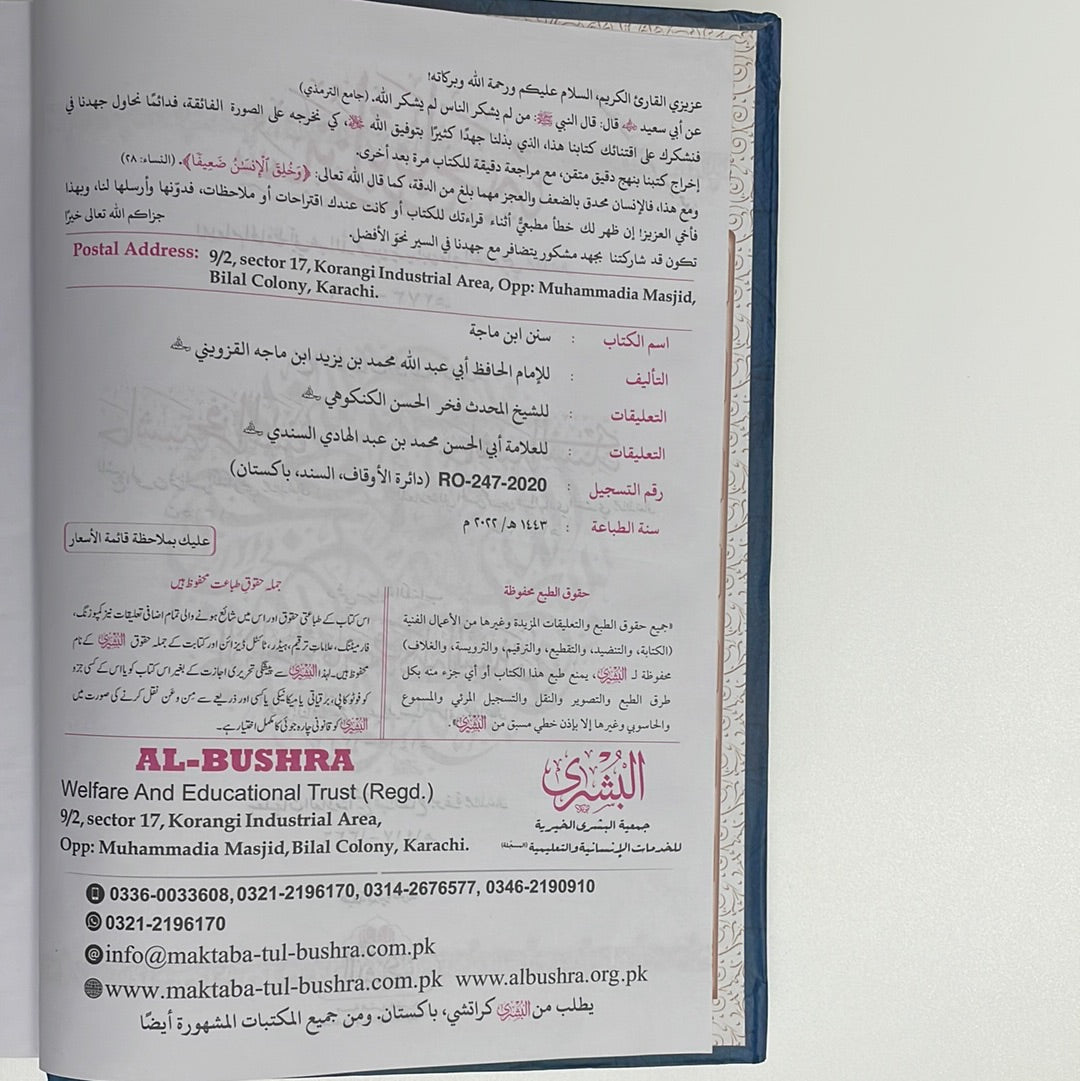 عزيزي القارئ الكريم، السلام عليكم ورحمة الله وبركاته!
عن أبي سعيد ﷺ قال: قال النبي ﷺ: من لم يشكر الناس لم يشكر الله. (جامع الترمذي)
فنشكرك على اقتنائك كتابنا هذا، الذي بذلنا جهدًا كثيرًا بتوفيق الله ﷻ، كي نخرجه على الصورة الفائقة، فدائمًا نحاول جهدنا في
إخراج كتبنا بنهج دقيق متقن، مع مراجعة دقيقة للكتاب مرة بعد أخرى.
ومع هذا، فالإنسان محدق بالضعف والعجز مهما بلغ من الدقة، كما قال الله تعالى: ﴿وَخُلِقَ ٱلْإِنسَٰنُ ضَعِيفًا﴾. (النساء: ٢٨)
فأخي العزيز! إن ظهر لك خطأ مطبعيٌّ أثناء قراءتك للكتاب أو كانت عندك اقتراحات أو ملاحظات، فدوّنها وأرسلها لنا، وبهذا
تكون قد شاركتنا بجهد مشكور يتضافر مع جهدنا في السير نحوَ الأفضل. جزاكم الله تعالى خيرًا
Postal Address: 9/2, sector 17, Korangi Industrial Area, Opp: Muhammadia Masjid,
Bilal Colony, Karachi.
اسم الكتاب : سنن ابن ماجة
التأليف : للإمام الحافظ أبي عبد الله محمد بن يزيد ابن ماجه القزويني
التعليقات : للشيخ المحدث فخر الحسن الكنكوهي
التعليقات : للعلامة أبي الحسن محمد بن عبد الهادي السندي
رقم التسجيل : RO-247-2020 (دائرة الأوقاف، السند، باكستان)
سنة الطباعة : ١٤٤٣ هـ/ ٢٠٢٢ م
عليك بملاحظة قائمة الأسعار
حقوق الطبع محفوظة
«جميع حقوق الطبع والتعليقات المزيدة وغيرها من الأعمال الفنية
(الكتابة، والتنضيد، والتقطيع، والترقيم، والترويسة، والغلاف)
محفوظة لـ البُشرى، يمنع طبع هذا الكتاب أو أي جزء منه بكل
طرق الطبع والتصوير والنقل والتسجيل المرئي والمسموع
والحاسوبي وغيرها إلا بإذن خطي مسبق من البُشرى».
جملہ حقوقِ طباعت محفوظ ہیں
اس کتاب کے طباعتی حقوق اور اس میں شائع ہونے والی تمام اضافی تعلیقات نیز کمپوزنگ،
فارمیٹنگ، علاماتِ ترقیم، ہیڈر، ٹائٹل ڈیزائن اور کتابت کے جملہ حقوق البُشریٰ کے نام
محفوظ ہیں۔ لہٰذا البُشریٰ سے پیشگی تحریری اجازت کے بغیر اس کتاب کو یا اس کے کسی جزو
کو فوٹو کاپی، برقیاتی یا میکانیکی یا کسی اور ذریعے سے مِن و عَن نقل کرنے کی صورت میں
البُشریٰ کو قانونی چارہ جوئی کا مکمل اختیار ہے۔
AL-BUSHRA
Welfare And Educational Trust (Regd.)
9/2, sector 17, Korangi Industrial Area,
Opp: Muhammadia Masjid, Bilal Colony, Karachi.
البُشرى
جمعية البشرى الخيرية
للخدمات الإنسانية والتعليمية (المسجلة)
0336-0033608, 0321-2196170, 0314-2676577, 0346-2190910
0321-2196170
info@maktaba-tul-bushra.com.pk
www.maktaba-tul-bushra.com.pk www.albushra.org.pk
يطلب من البُشرى كراتشي، باكستان. ومن جميع المكتبات المشهورة أيضًا